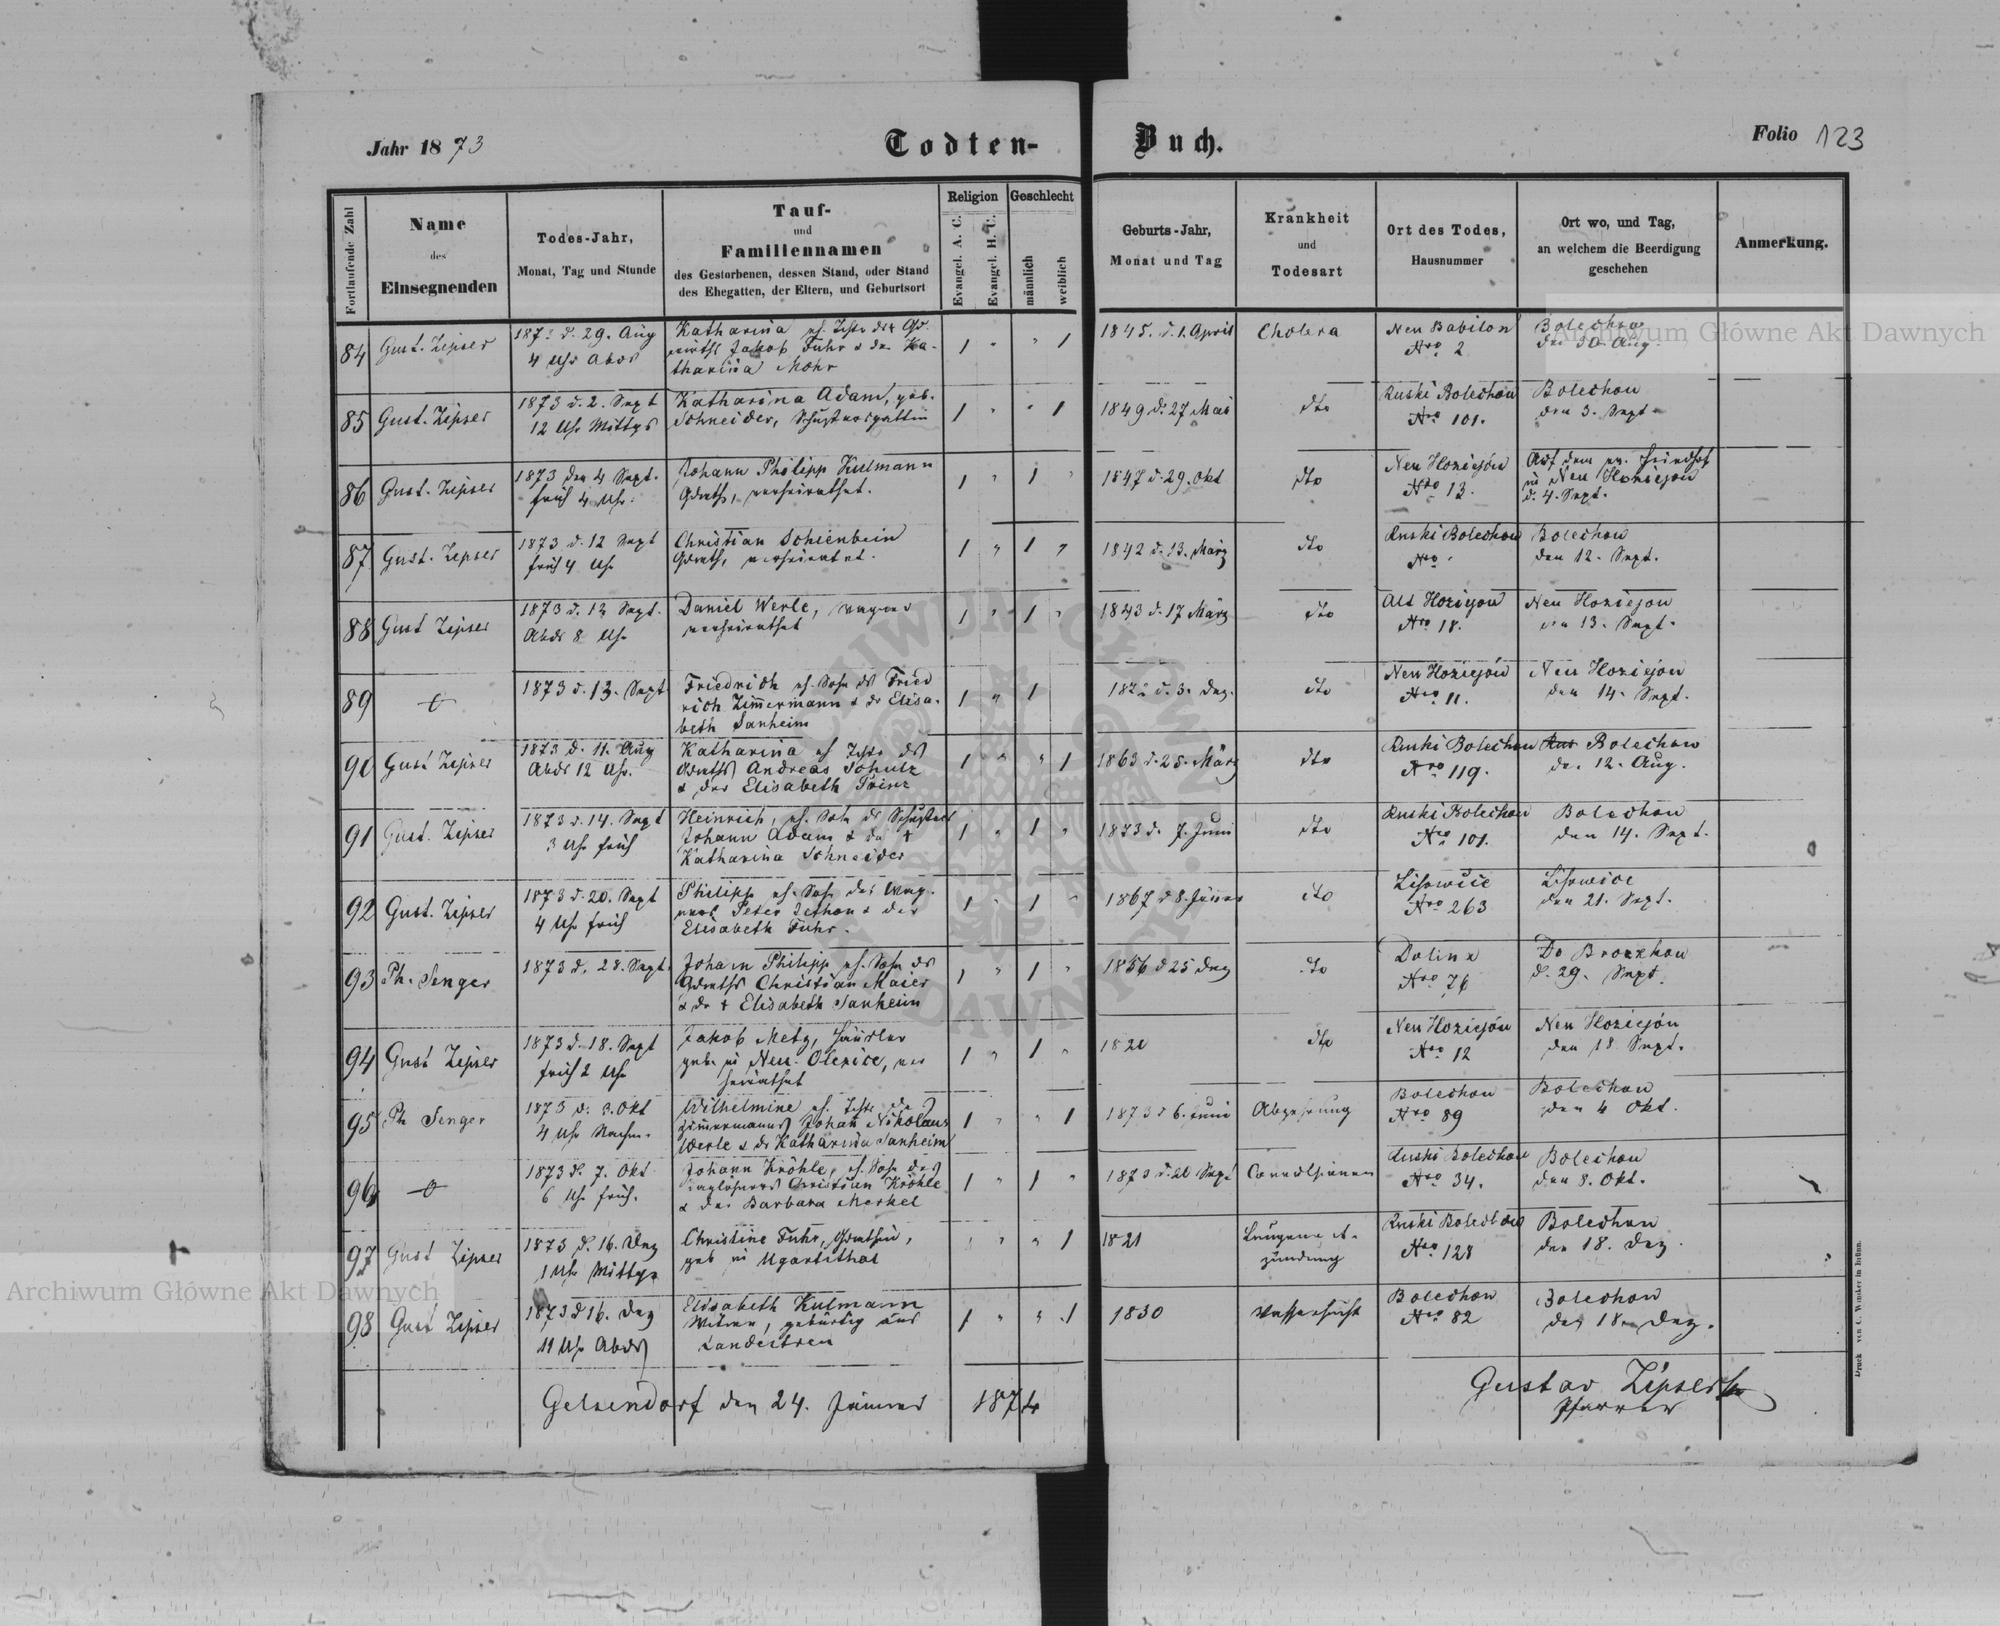 Jahr 1873
Todten-Buch.
Folio 123
Fortlaufende Zahl
Name
des
Einsegnenden
Todes-Jahr,
Monat, Tag und Stunde
Tauf-
und
Familiennamen
des Gestorbenen, dessen Stand, oder Stand
des Ehegatten, der Eltern, und Geburtsort
Religion
Evangel. A. C.
Evangel. H. C.
Geschlecht
männlich
weiblich
Geburts-Jahr,
Monat und Tag
Krankheit
und
Todesart
Ort des Todes,
Hausnummer
Ort wo, und Tag,
an welchem die Beerdigung
geschehen
Anmerkung.
84 Gust. Zipser
1873 d. 29. Aug
4 Uhr Abds
Katharina eh. Tcht. des
Jakob Fuhr & der Ka-
tharina Mohr
1 " " 1
1845. d. 1. April
Cholera
Neu Babilon
Nro 2
Bolechow
den 30 Aug.
85 Gust. Zipser
1873 d. 2. Sept
12 Uhr Mittgs
Katharina Adam, geb.
Schneider, Schustersgattin
1 " " 1
1849 d. 27 Mai
dto
Ruski Bolechow
Nro 101.
Bolechow
den 3. Sept
86 Gust. Zipser
1873 den 4 Sept.
früh 4 Uhr.
Johann Philipp Kulmann
Grdwth, verheirathet.
1 " 1 "
1847 d. 29. Okt
dto
Neu Hoziejów
Nro 13.
Auf dem ev. Friedhof
in Neu Hoziejow
d. 4. Sept.
87 Gust. Zipser
1873 d. 12 Sept
früh 4 Uhr
Christian Schienbein
Grdwth, verheiratet.
1 " 1 "
1842 d. 13. März
dto
Ruski Bolechow
Nro
Bolechow
den 12. Sept.
88 Gust Zipser
1873 d. 12 Sept.
Abds 8 Uhr
Daniel Werle, Wagner
verheirathet
1 " 1 "
1843 d. 17 März
dto
Alt Hoziejow
Nro 18.
Neu Hoziejow
den 13. Sept.
89
1873 d. 13. Sept
Friedrich eh. Sohn des Fried
rich Zimmermann & der Elisa-
beth Sanheim
1 " 1
1872 d. 3. Dez.
dto
Neu Hoziejów
Nro 11.
Neu Hoziejow
den 14. Sept.
90 Gust Zipser
1873 d. 11. Aug
Abds 12 Uhr.
Katharina eh Tcht. des
Grdwths Andreas Schulz
& der Elisabeth Prinz
1 " " 1
1863 d. 28. März
dto
Ruski Bolechow
Nro 119.
Bolechow
den 12. Aug.
91 Gust. Zipser
1873 d. 14. Sept
3 Uhr früh
Heinrich, eh. Sohn des Schusters
Johann Adam & der †
Katharina Schneider
1 " 1 "
1873 d. 7. Juni
dto
Ruski Bolechow
Nro 101.
Bolechow
den 14. Sept.
92 Gust. Zipser
1873 d. 20. Sept
4 Uhr früh
Philipp eh. Sohn des Wag-
ners Peter Jethon & der
Elisabeth Fuhr.
1 " 1 "
1867 d 8. Jänner
dto
Lisowice
Nro 263
Lisowice
den 21. Sept.
93 Ph. Senger
1873 d. 28. Sept.
Johann Philipp eh. Sohn des
Grdwths Christian Maier
& der † Elisabeth Sanheim
1 " 1 "
1856 d 25 Dez
dto
Dolina
Nro 76
d. 29. Sept.
94 Gust Zipser
1873 d. 18. Sept
früh 2 Uhr
Jakob Metz, Häusler
geb. in Neu-Olexice, ver
heirathet
1 " 1 "
dto
Neu Hoziejów
Nro 12
Neu Hoziejón
den 18 Sept.
95 Ph Senger
1873 d. 3. Okt
4 Uhr Nachm.
Wilhelmine eh. Tcht. des
Zimmermanns Johan Nikolaus
Werle & der Katharina Sanheim
1 " " 1
1873 d 6. Juni
Abzehrung
Bolechow
Nro 89
Bolechow
den 4 Okt.
96
1873 d. 7. Okt
6 Uhr früh.
Johann Kröhle, eh. Sohn des
Taglöhners Christian Kröhle
& der Barbara Merkel
1 " 1 "
1873 d. 20 Sept
Convulsionen
Ruski Bolechow
Nro 34.
Bolechow
den 8. Okt.
97 Gust Zipser
1873 d. 16. Dez
1 Uhr Mittgs
Christine Fuhr, Grdwthin,
geb in Ugartsthal
" " 1
1821
Lungenent-
zündung
Ruski Bolechow
Nro 128
Bolechow
den 18. Dez.
98 Gust Zipser
1873 d 16. Dez
11 Uhr Abds
Elisabeth Kulmann
Witwe, gebürtig aus
Landestreu
1 " " 1
1830
Wassersucht
Bolechow
Nro 82
Bolechow
den 18. Dez.
Gelsendorf den 24. Jänner 1874
Gustav Zipser
Pfarrer
Druck von C. Winiker in Brünn.
Archiwum Główne Akt Dawnych
Archiwum Główne Akt Dawnych
ARCHIWUM GŁÓWNE AKT DAWNYCH